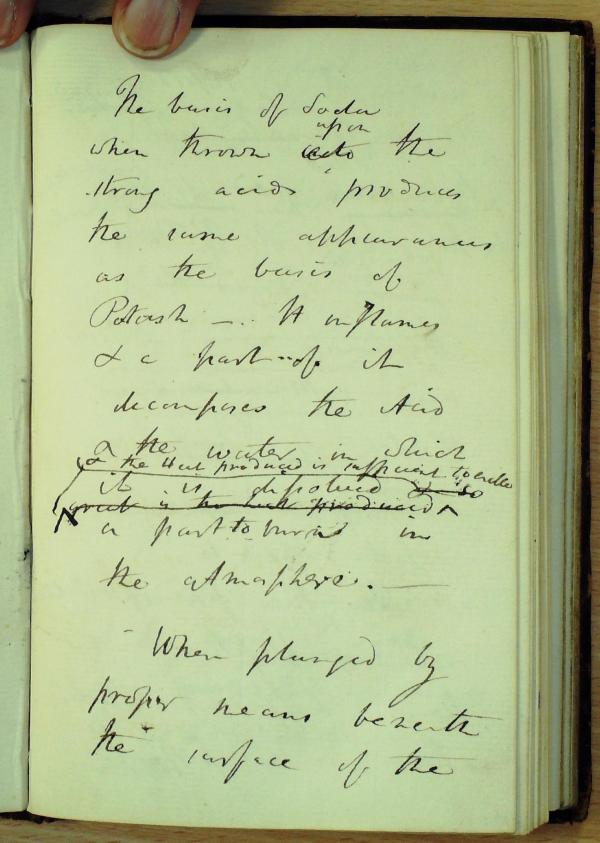 The basis of Soda
upon
when thrown into the
strong acids produces
the same appearances
as the basis of
Potash —. It inflames
& a part of it
decomposes the Acid
& the water in which
& the Heat produced is sufficient to enable
it is dissolved & so
great is the heat produced
a part to burn in
the atmosphere. —
When plunged by
proper means beneath
the surface of the